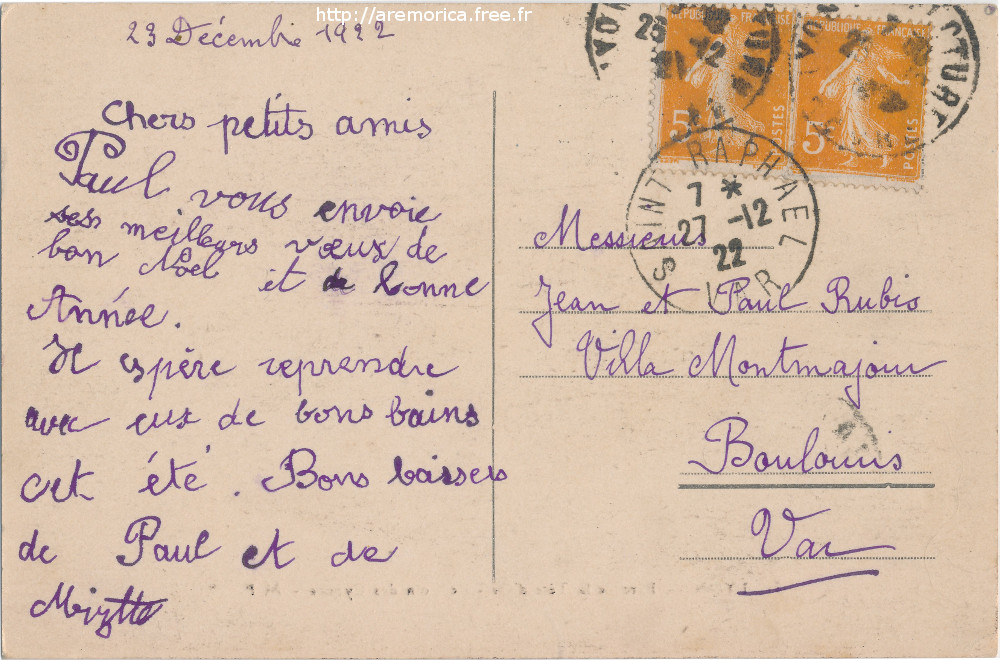 http://aremorica.free.fr
23 Décembre 1922
Chers petits amis
Paul vous envoie
ses meilleurs vœux de
bon Noël et de bonne
Année.
Il espère reprendre
avec eux de bons bains
cet été. Bons baisers
de Paul et de
REPUBLIQUE FRANÇAISE
REPUBLIQUE FRANÇAISE
5c POSTES
5c POSTES
SAINT RAPHAEL
7 *
27 -12
22
VAR
Messieurs
Jean et Paul Rubis
Villa Montmajour
Boulouris
Var